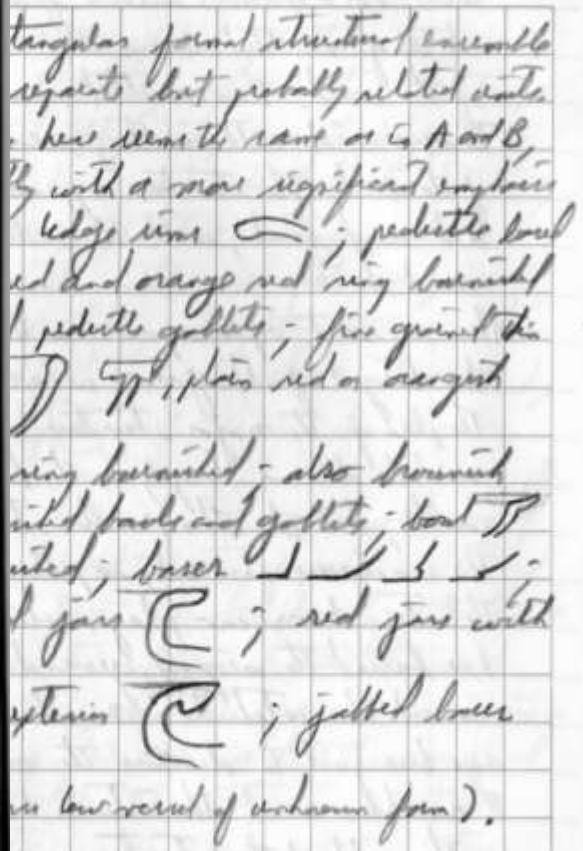 tangular formal structural ensemble
separate but probably related units
here seems the same as in A and B,
ly with a more significant emphasis
ledge rims ; pedestle bowl
ed and orange red ring burnished
pedestle goblets ; fine grained thin
, plain red or orangish
ring burnished ; also brownish
bowls and goblets ; bowl
; bases ;
jars ; red jars with
exterior ; jabbed bases
low vessel of unknown form).